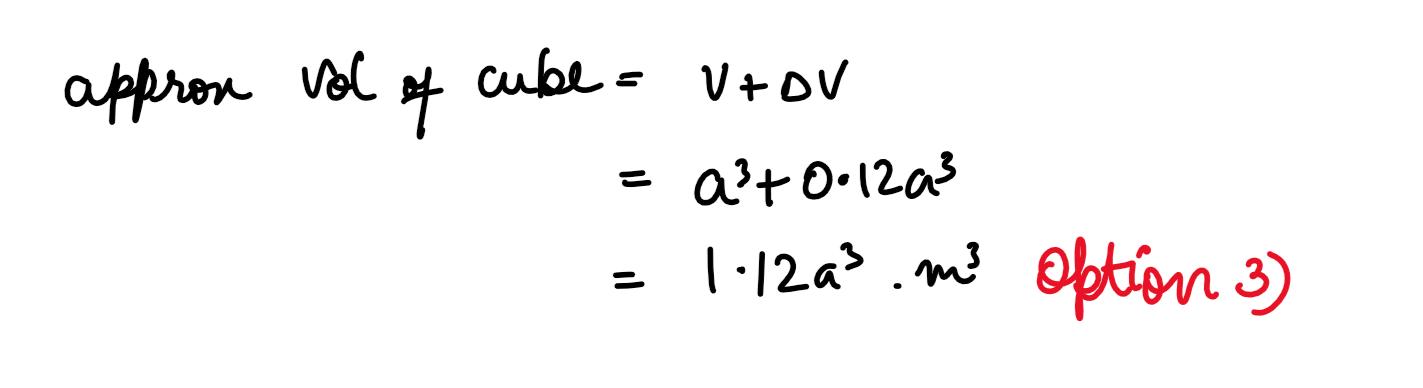 approx vol of cube = V + ΔV
= a³ + 0.12a³
= 1.12a³ . m³ Option 3)